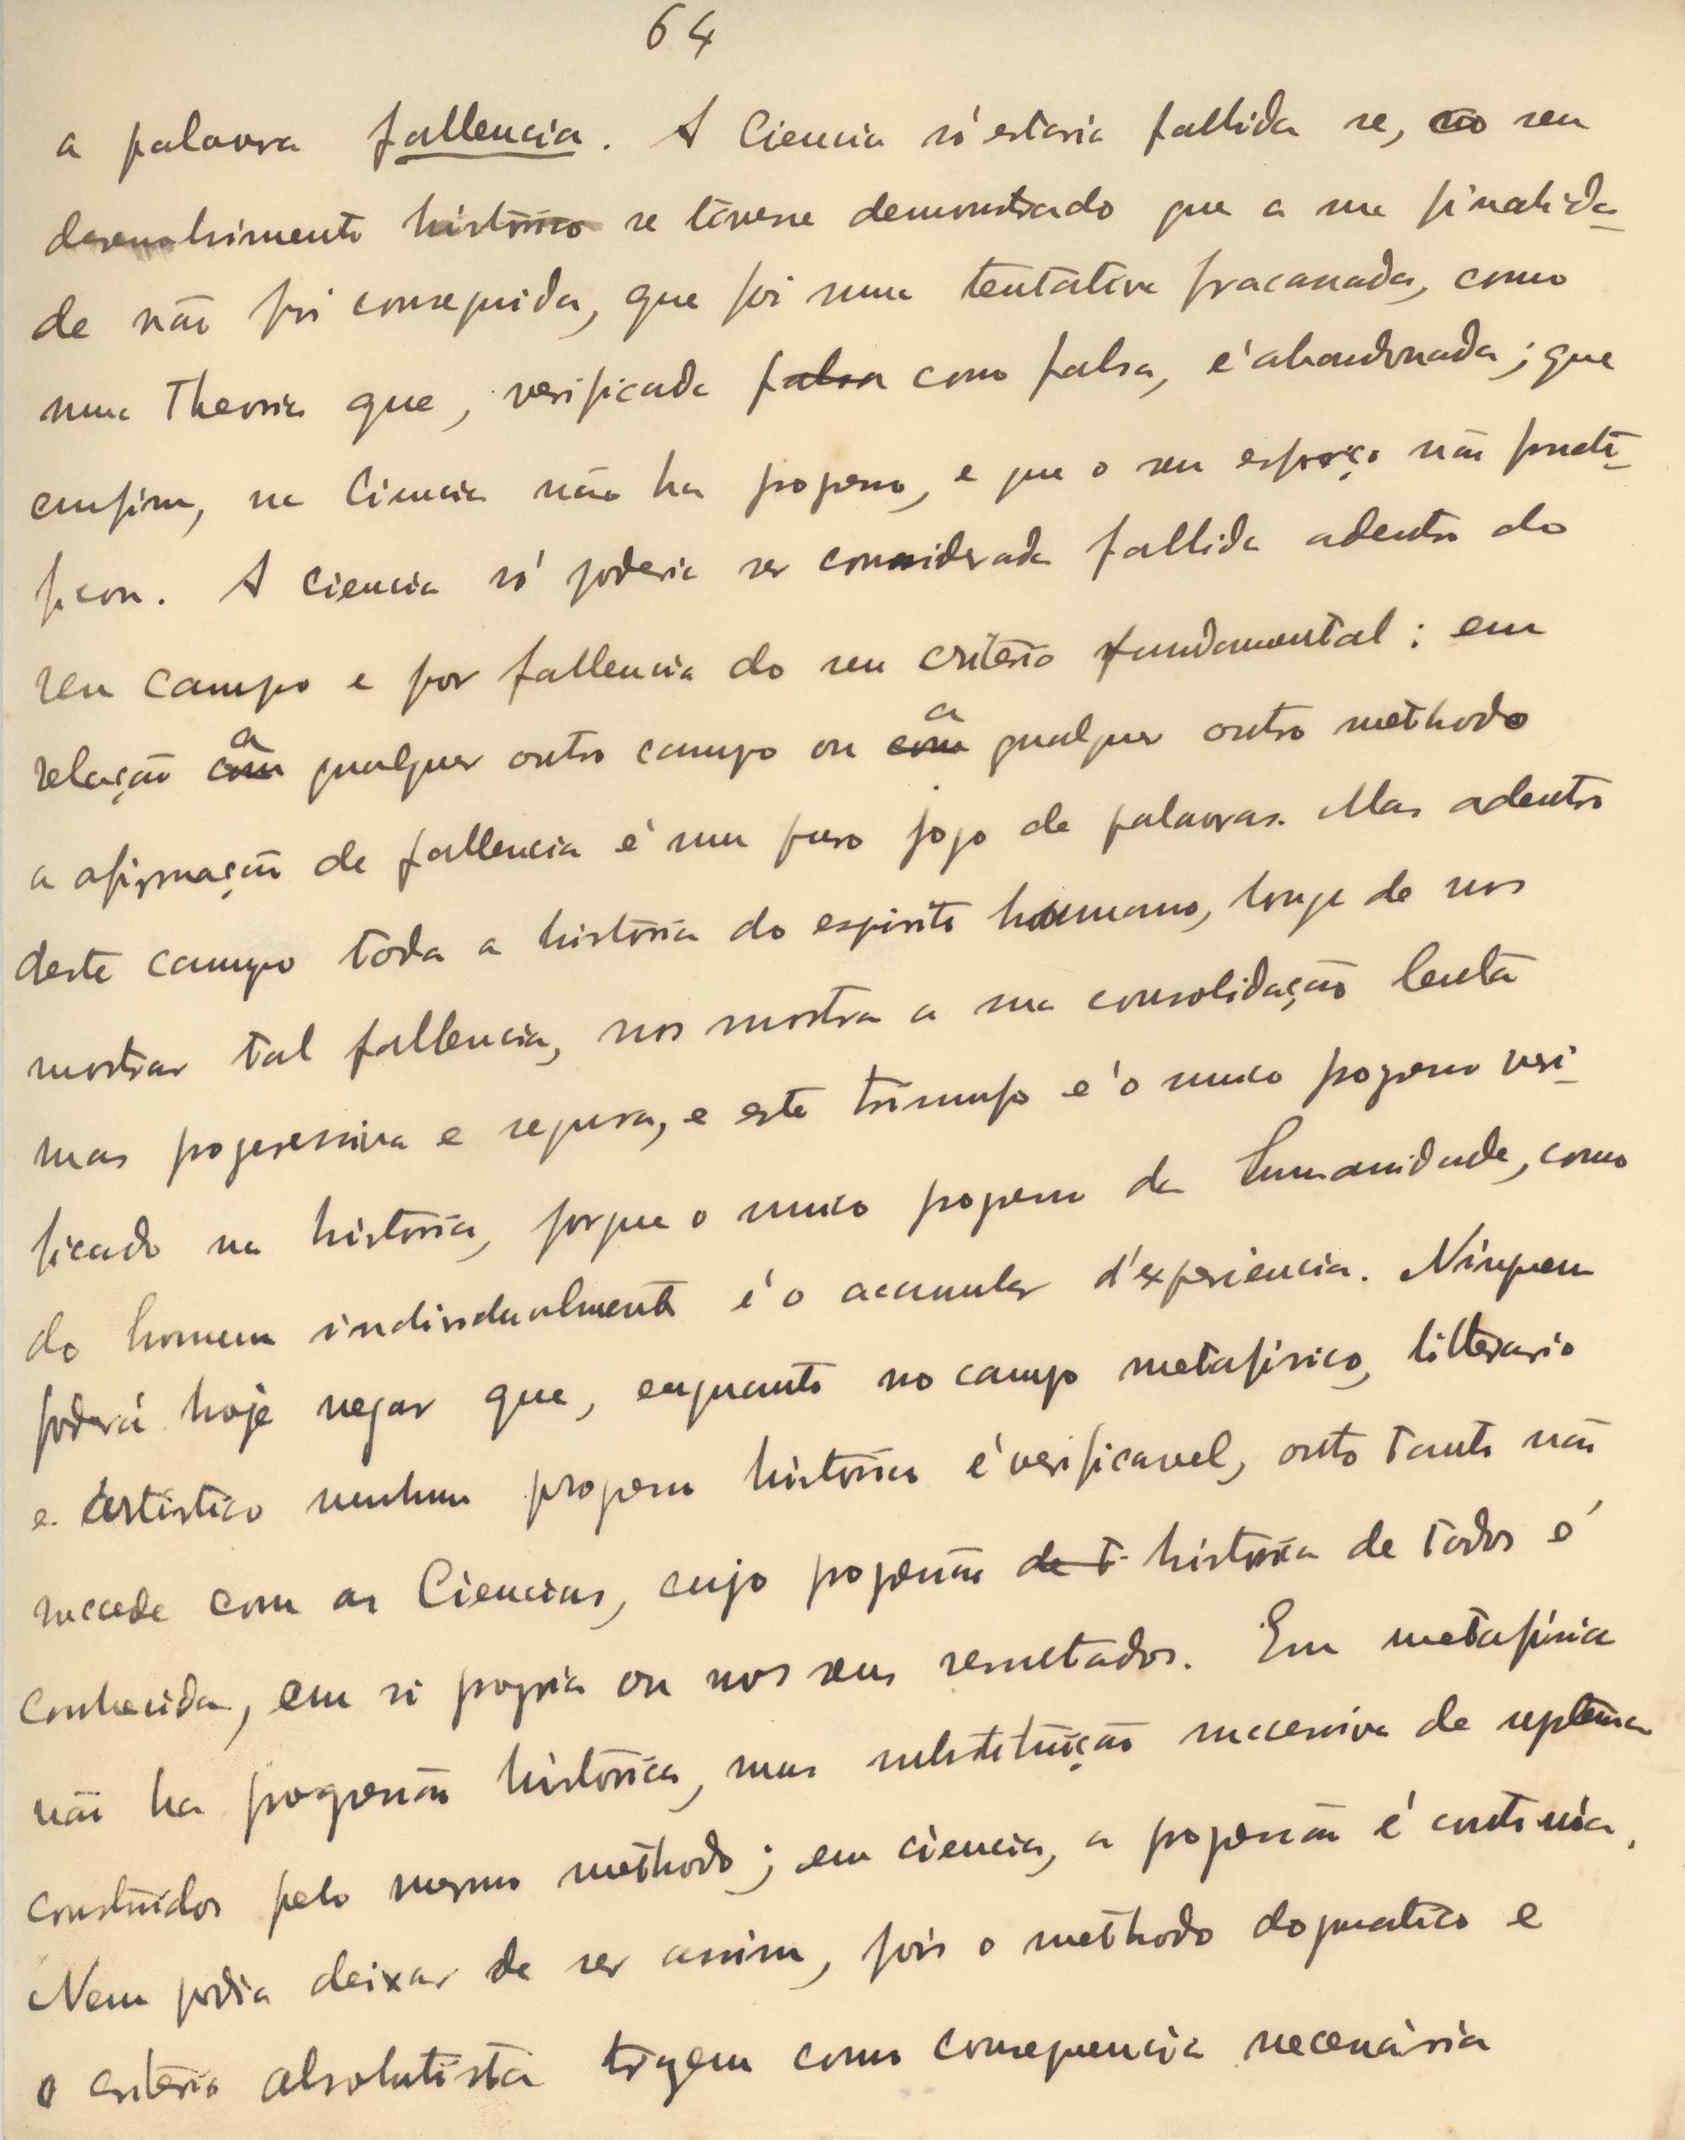 64
a palavra fallencia. A Ciencia só estaria fallida se, no seu
desenvolvimento historico se tivesse demonstrado que a sua finalida-
de não foi conseguida, que foi uma tentativa fracassada, como
uma theoria que, verificada falsa como falsa, é abandonada; que
emfim, na Ciencia não ha progresso, e que o seu esforço não fructi-
ficou. A Ciencia só poderia ser considerada fallida adentro do
seu campo e por fallencia do seu critério fundamental: em
relação com a qualquer outro campo ou com a qualquer outro methodo
a afirmação de fallencia é um puro jogo de palavras. Mas adentro
deste campo toda a historia do espirito humano, longe de nos
mostrar tal fallencia, nos mostra a sua consolidação lenta
mas progressiva e segura, e este triumfo é o unico progresso veri-
ficado na historia, porque o unico progresso da humanidade, como
do homem individualmente é o acumular d'experiencia. Ninguem
poderá hoje negar que, enquanto no campo metafisico, litterario
e artistico nenhum progresso historico é verificavel, outo tanto não
succede com as Ciencias, cujo progressão de t historia de todos é
conhecida, em si propria ou nos seus resultados. Em metafisica
não ha progressão historica, mas substituição successiva de systema
construidos pelo mesmo methodo; em ciencia, a progressão é continua.
Nem podia deixar de ser assim, pois o methodo dogmatico e
o critério absolutista trazem como consequencia necessária